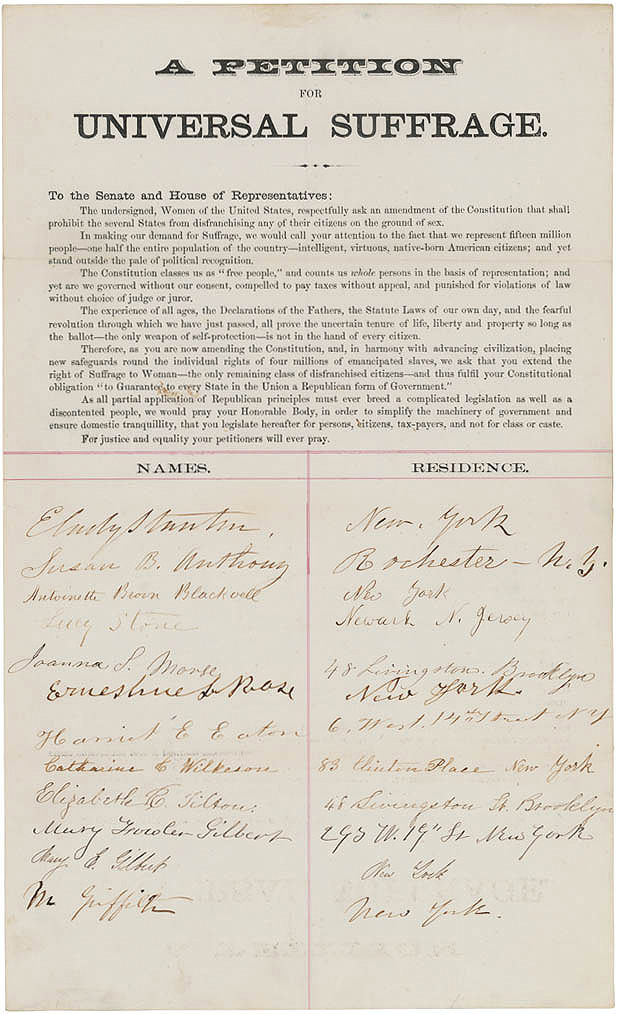 A PETITION
FOR
UNIVERSAL SUFFRAGE.
To the Senate and House of Representatives:
The undersigned, Women of the United States, respectfully ask an amendment of the Constitution that shall
prohibit the several States from disfranchising any of their citizens on the ground of sex.
In making our demand for Suffrage, we would call your attention to the fact that we represent fifteen million
people—one half the entire population of the country—intelligent, virtuous, native-born American citizens; and yet
stand outside the pale of political recognition.
The Constitution classes us as "free people," and counts us whole persons in the basis of representation; and
yet are we governed without our consent, compelled to pay taxes without appeal, and punished for violations of law
without choice of judge or juror.
The experience of all ages, the Declarations of the Fathers, the Statute Laws of our own day, and the fearful
revolution through which we have just passed, all prove the uncertain tenure of life, liberty and property so long as
the ballot—the only weapon of self-protection—is not in the hand of every citizen.
Therefore, as you are now amending the Constitution, and, in harmony with advancing civilization, placing
new safeguards round the individual rights of four millions of emancipated slaves, we ask that you extend the
right of Suffrage to Woman—the only remaining class of disfranchised citizens—and thus fulfil your Constitutional
obligation "to Guarantee to every State in the Union a Republican form of Government."
As all partial application of Republican principles must ever breed a complicated legislation as well as a
discontented people, we would pray your Honorable Body, in order to simplify the machinery of government and
ensure domestic tranquillity, that you legislate hereafter for persons, citizens, tax-payers, and not for class or caste.
For justice and equality your petitioners will ever pray.
NAMES. RESIDENCE.
E Cady Stanton. New. York
Susan B. Anthony Rochester – N. Y.
Antoinette Brown Blackwell New York
Lucy Stone Newark N. Jersey
Joanna S. Morse 48 Livingston. Brooklyn
Ernestine L Rose New York.
Harriet E Eaton 6. West. 14th Street N Y
Catharine C Wilkeson 83 Clinton Place New York
Elizabeth R. Tilton. 48 Livingston St. Brooklyn
Mary Fowler Gilbert 293 W. 19" St New York
Mary E. Gilbert New York
M Griffith New York.